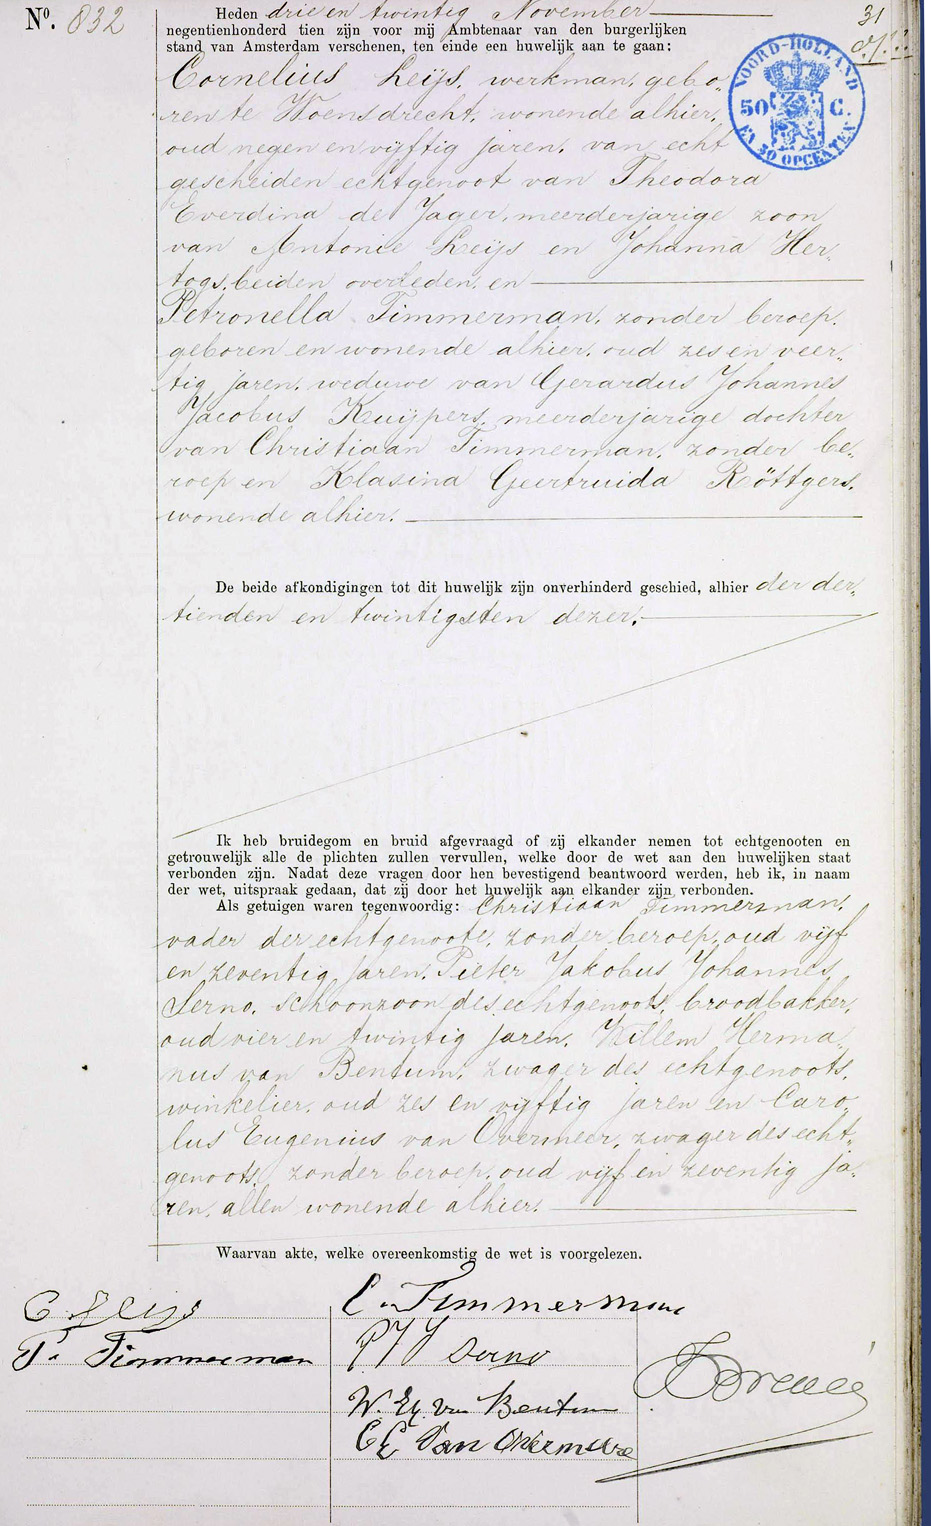 Nº. 832
Heden drie en twintig November
31
negentienhonderd tien zijn voor mij Ambtenaar van den burgerlijken
stand van Amsterdam verschenen, ten einde een huwelijk aan te gaan:
NOORD-HOLLAND
50 C.
EN 50 OPCENTEN
Cornelius Leijs, werkman, gebo„
ren te Woensdrecht, wonende alhier,
oud negen en vijftig jaren, van echt
gescheiden echtgenoot van Theodora
Everdina de Jager, meerderjarige zoon
van Antonie Leijs en Johanna Her„
togs, beiden overleden, en
Petronella Timmerman, zonder beroep,
geboren en wonende alhier, oud zes en veer„
tig jaren, weduwe van Gerardus Johannes
Jacobus Kuijpers, meerderjarige dochter
van Christiaan Timmerman, zonder be„
roep en Klasina Geertruida Röttgers,
wonende alhier.
De beide afkondigingen tot dit huwelijk zijn onverhinderd geschied, alhier der der„
tienden en twintigsten dezer.
Ik heb bruidegom en bruid afgevraagd of zij elkander nemen tot echtgenooten en
getrouwelijk alle de plichten zullen vervullen, welke door de wet aan den huwelijken staat
verbonden zijn. Nadat deze vragen door hen bevestigend beantwoord werden, heb ik, in naam
der wet, uitspraak gedaan, dat zij door het huwelijk aan elkander zijn verbonden.
Als getuigen waren tegenwoordig: Christiaan Timmerman,
vader der echtgenoote, zonder beroep, oud vijf
en zeventig jaren, Pieter Jakobus Johannes
Serno, schoonzoon des echtgenoots, broodbakker,
oud vier en twintig jaren, Willem Herma„
nus van Bentum, zwager des echtgenoots,
winkelier, oud zes en vijftig jaren en Caro„
lus Eugenius van Overmeer, zwager des echt„
genoots, zonder beroep, oud vijf en zeventig ja„
ren, allen wonende alhier.
Waarvan akte, welke overeenkomstig de wet is voorgelezen.
C Leijs
C Timmerman
P. Timmerman
P J J Serno
W. H. van Bentum
C E Van Overmeere